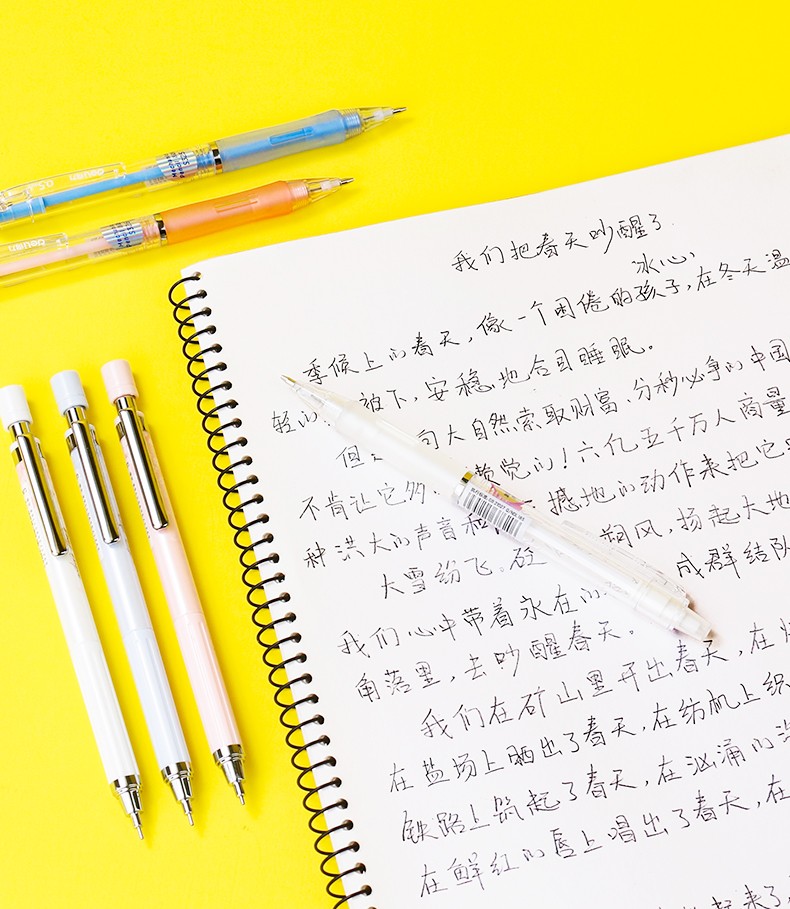 我们把春天吵醒了
冰心
季候上的春天,像一个困倦的孩子,在冬天温
轻的 被下,安稳地合目睡眠。
但 向大自然索取财富、分秒必争的中国
不肯让它多 懒觉的!六亿五千万人商量
种洪大的声音和 撼地的动作来把它
大雪纷飞。 朔风,扬起大地
我们心中带着永在的 成群结队
角落里,去吵醒春天。
我们在矿山里开出春天,在
在盐场上晒出了春天,在纺机上织
铁路上筑起了春天,在汹涌的
在鲜红的唇上唱出了春天,在
起来了
deli
0.5
deli